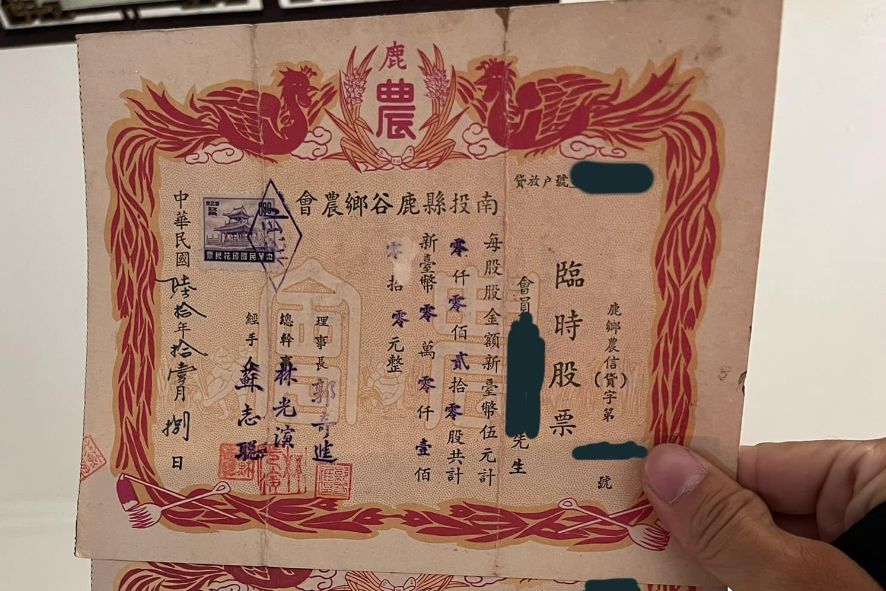 鹿
農
貸放户號
南投縣鹿谷鄉農會
鹿鄉農信貸(　)字第
號
臨時股票
會員
先生
每股股金額新臺幣伍元計
零仟零佰貳拾零股共計
新臺幣零萬零仟壹佰
零拾零元整
理事長郭奇進
總幹事林光演
經手人蘇志聰
中華民國陸拾年拾壹月捌日
中華民國印花稅票